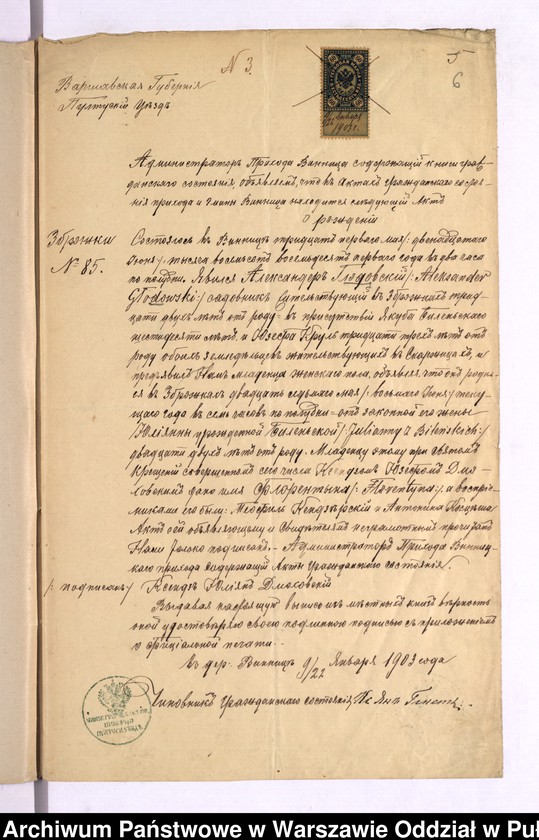 N 3.
5
6
Варшавская Губернія
Пултускій Уѣздъ
9/22 января
1903 г.
Администраторъ Прихода Винница содержащій книги граж-
данскаго состоянія, объявляетъ, что въ Актахъ гражданскаго состоя-
нія прихода и гмины Винница находится слѣдующій Актъ
О рожденіи
Зброжки
№ 85.
Состоялось въ Винницѣ тридцать перваго мая /: двенадцатаго
Іюня :/ тысяча восемьсотъ восемьдесятъ перваго года въ два часа
по полудни. Явился Александеръ Глодовскій /: Aleksander
Głodowski :/ садовникъ жительствующій въ Зброжкахъ трид-
цати двухъ лѣтъ отъ роду = въ присутствіи Якуба Биленьскаго
шестидесяти лѣтъ, и Юзефа Круль тридцати трехъ лѣтъ отъ
роду обоихъ земледѣльцевъ жительствующихъ въ Скарожицахъ, и
предъявилъ Намъ младенца женскаго пола, объявляя, что онъ родил-
ся въ Зброжкахъ двадцать седьмаго мая /: восьмаго Іюня :/ теку-
щаго года въ семь часовъ по полудни = отъ законной его жены
Юліянны урожденной Биленьской /: Julianny z Bileńskich :/
двадцати двухъ лѣтъ отъ роду. Младенцу этому при святомъ
крещеніи совершенномъ сего числа Ксендзомъ
дано имя Флорентына /: Florentyna :/, а воспрі-
емниками его были: Теофиль Кендзѣрскій и Антонина
Актъ сей объявляющему и Свидѣтелямъ неграмотнымъ прочитанъ
Нами только подписанъ. - Администраторъ Прихода Винниц-
каго прихода содержащій Акты гражданскаго состоянія.
/: подписалъ :/ Ксендзъ Юліянъ Дмоховскій
Выдавая настоящую выпись изъ мѣстныхъ книгъ вѣрность
оной удостовѣряю своею подлинною подписью съ приложеніемъ
оффиціальной печати. -
въ дер. Винницѣ 9/22 Января 1903 года
Чиновникъ гражданскаго состоянія, Кс. Янъ
Archiwum Państwowe w Warszawie Oddział w Puł